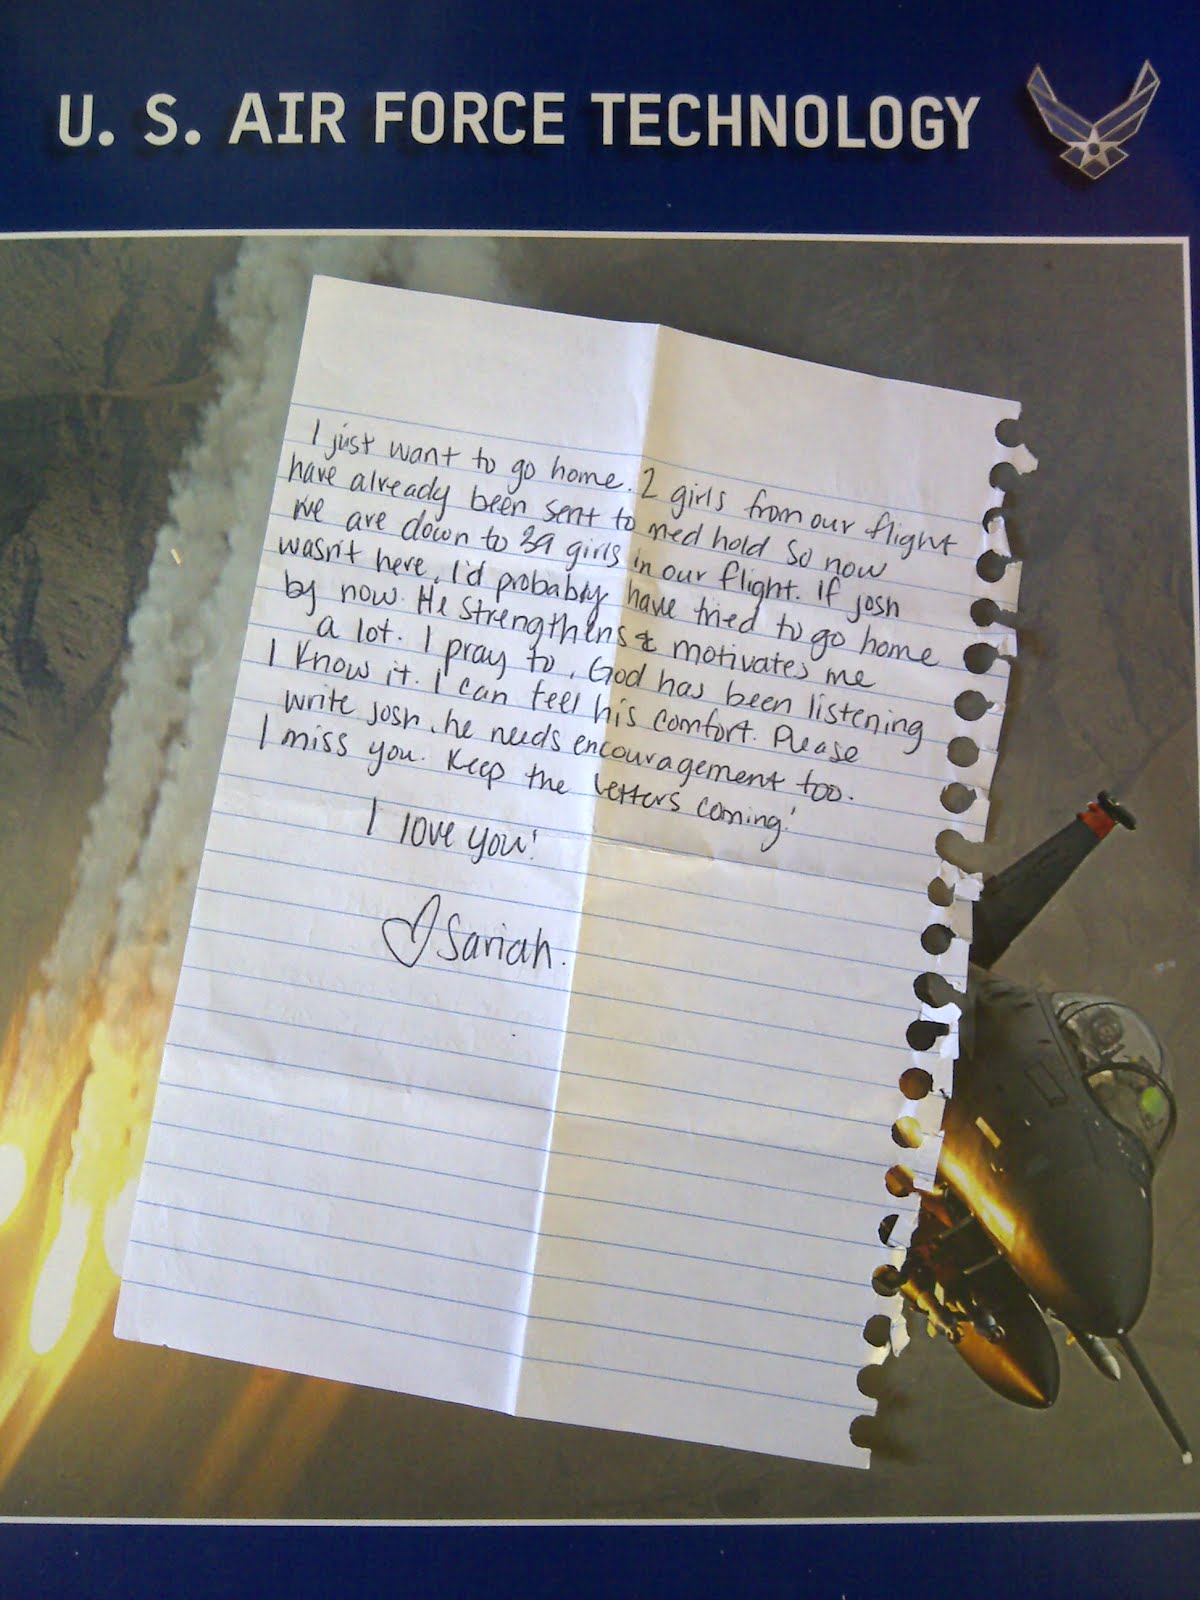 U. S. AIR FORCE TECHNOLOGY
I just want to go home. 2 girls from our flight
have already been sent to med hold so now
we are down to 39 girls in our flight. If Josh
wasn't here, I'd probably have tried to go home
by now. He strengthens & motivates me
a lot. I pray to, God has been listening
I know it. I can feel his comfort. Please
write Josh, he needs encouragement too.
I miss you. Keep the letters coming!
I love you!
♡ Sariah.